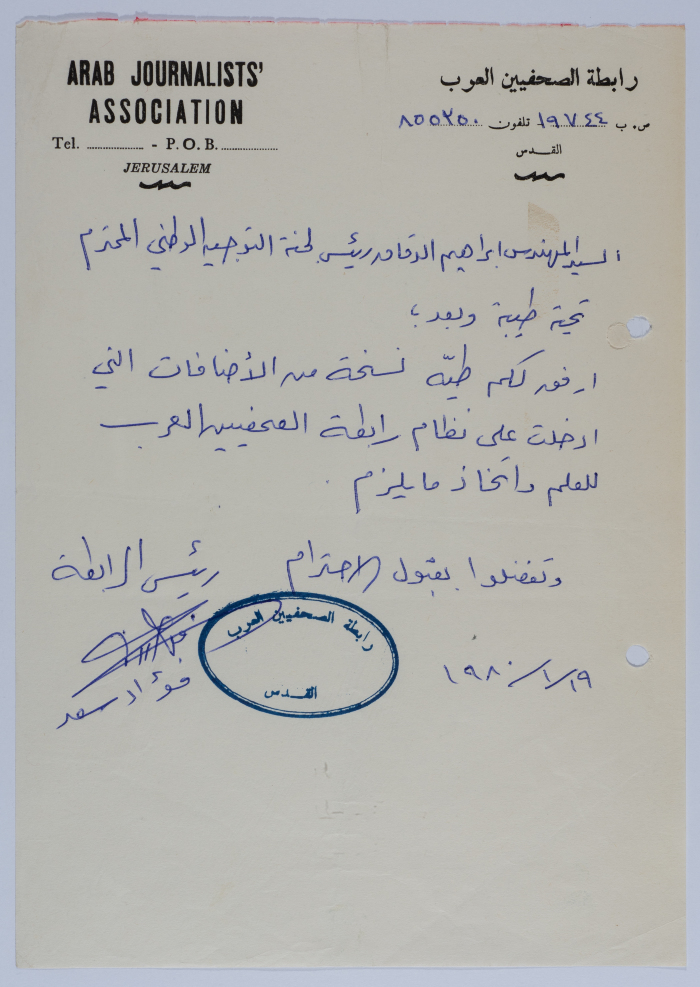 ARAB JOURNALISTS'
ASSOCIATION
Tel. .................... - P.O.B. ....................
JERUSALEM
رابطة الصحفيين العرب
ص. ب ١٩٧٤٤ تلفون ٨٥٥٢٥٠
القدس
السيد المهندس ابراهيم الدقاق رئيس لجنة التوجيه الوطني المحترم
تحية طيبة وبعد ؛
ارفق لكم طيّه نسخة من الأضافات التي
ادخلت على نظام رابطة الصحفيين العرب
للعلم واتخاذ ما يلزم .
وتفضلوا بقبول الاحترام
رئيس الرابطة
فؤاد سعد
رابطة الصحفيين العرب
القدس
١٩/١/١٩٨٠